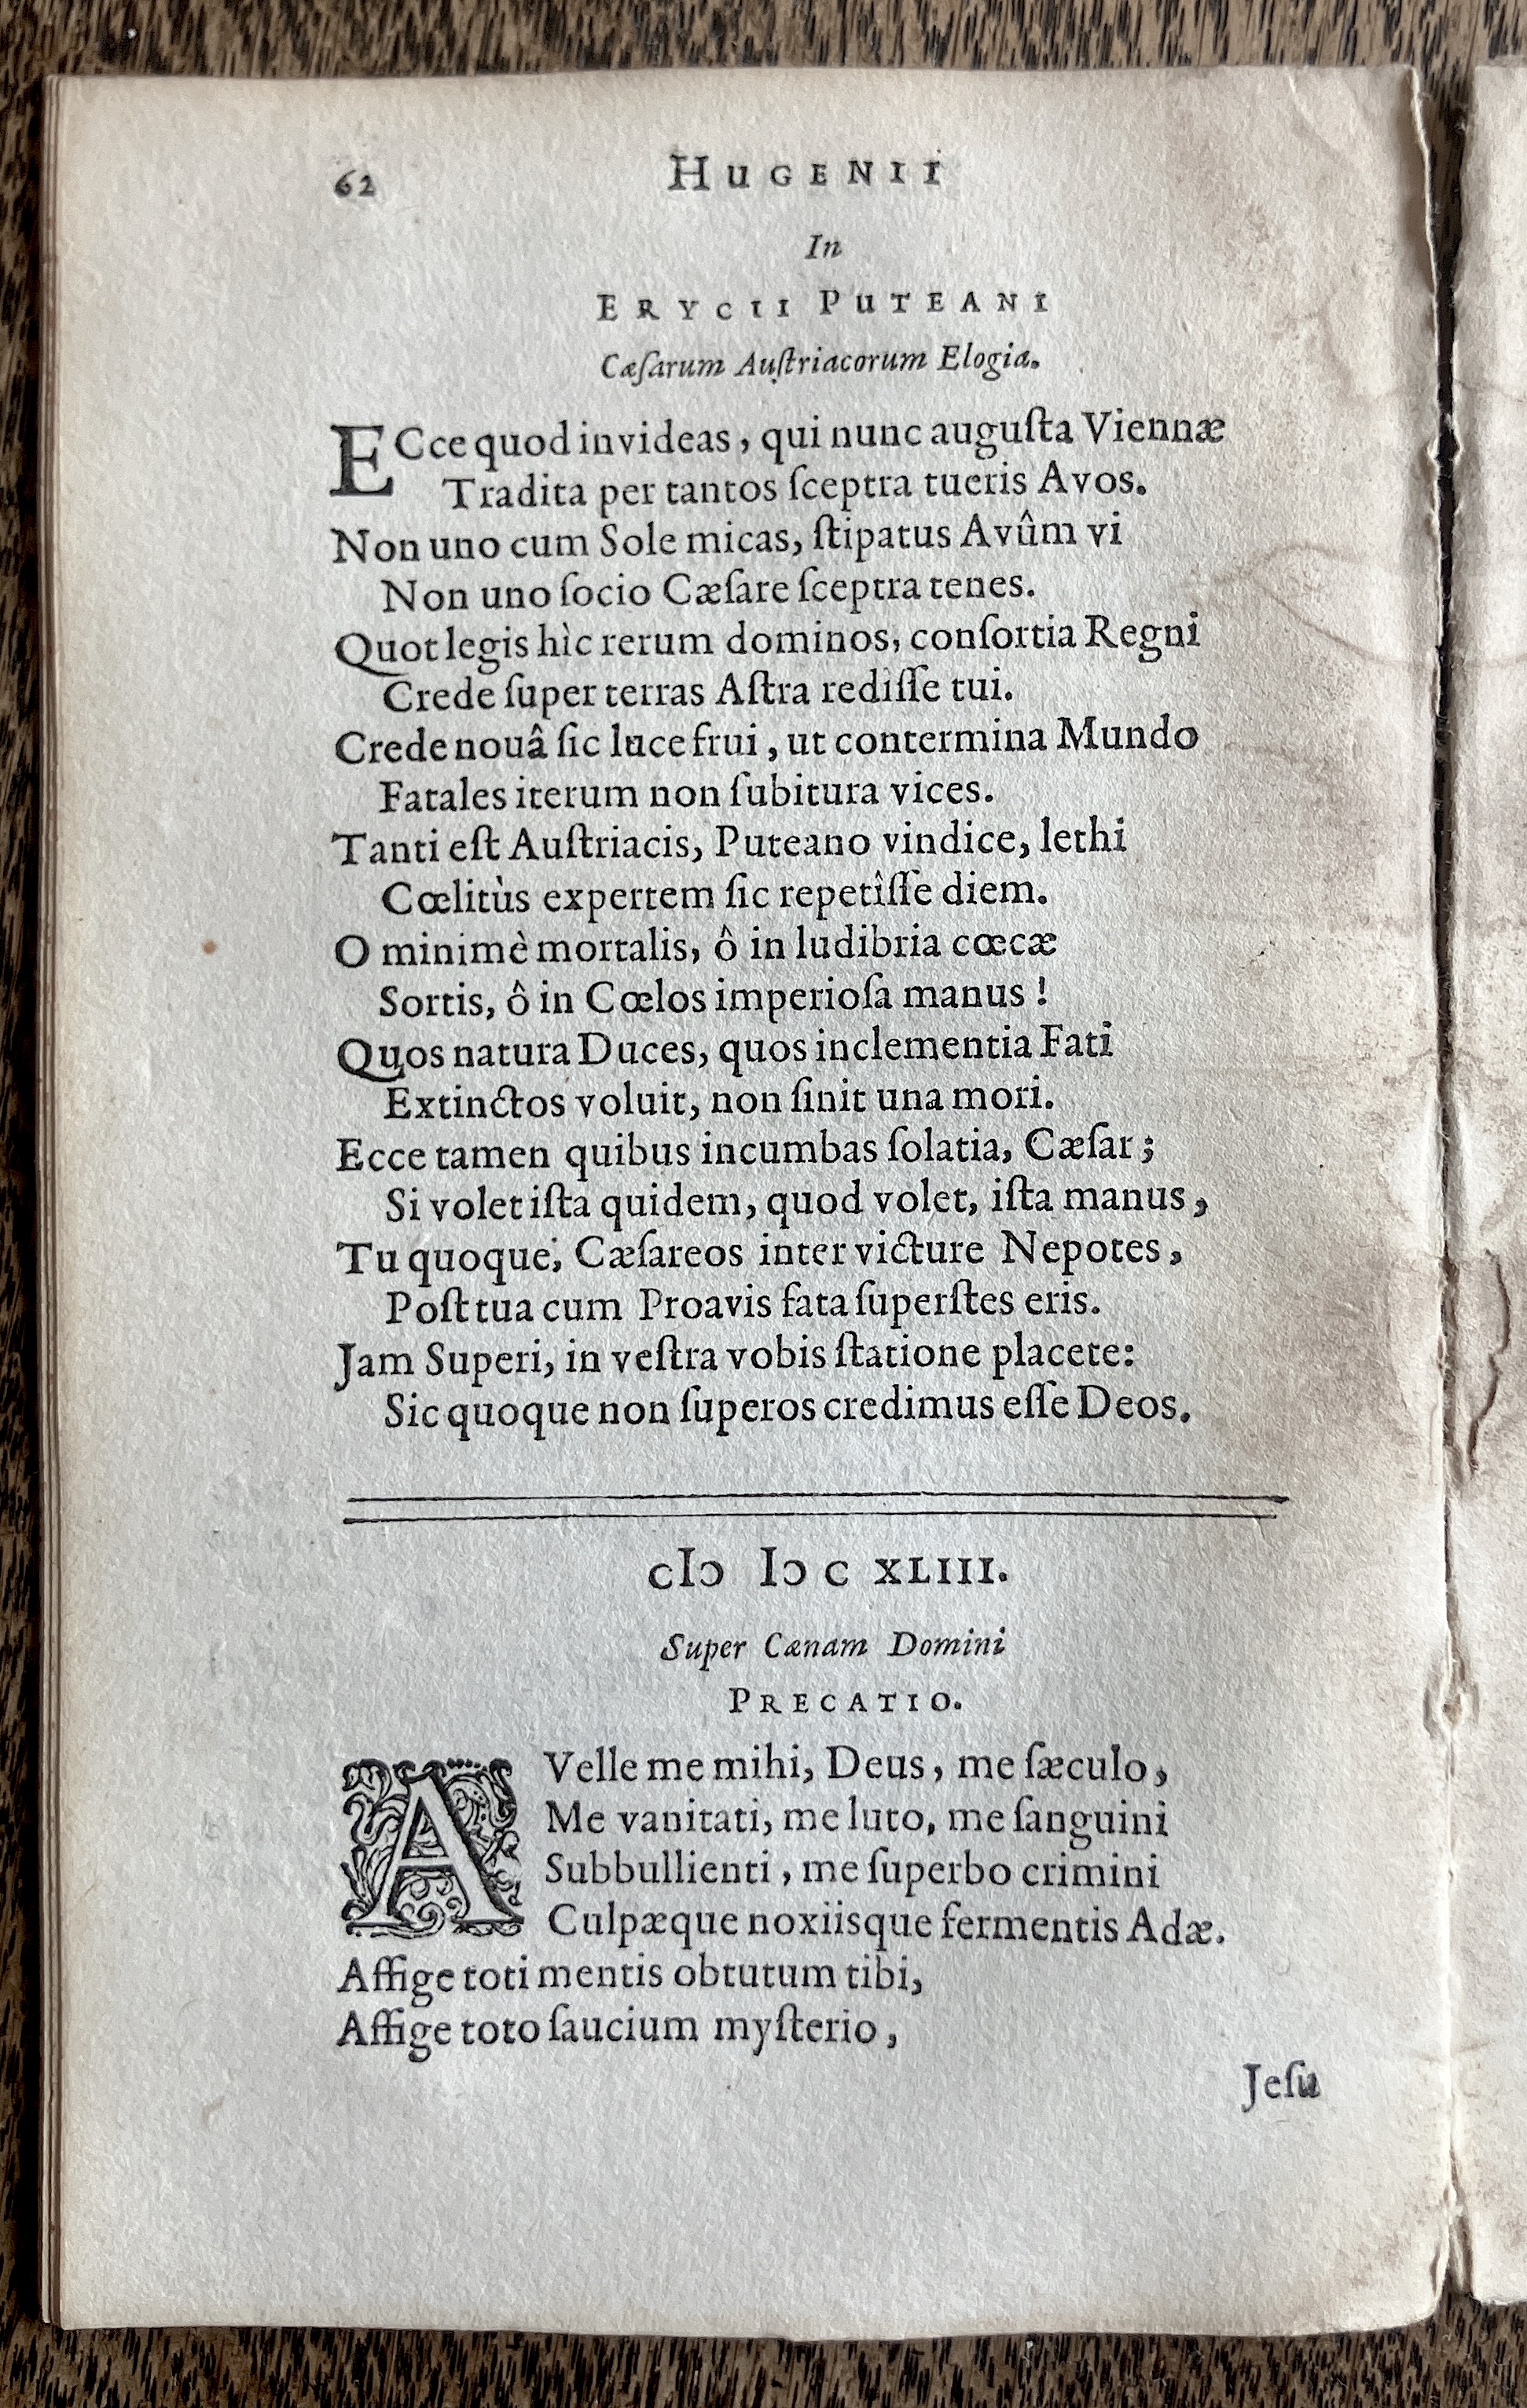 62 HUGENII
In
ERYCII PUTEANI
Cæſarum Auſtriacorum Elogia.
ECce quod invideas, qui nunc auguſta Viennæ
Tradita per tantos ſceptra tueris Avos.
Non uno cum Sole micas, ſtipatus Avûm vi
Non uno ſocio Cæſare ſceptra tenes.
Quot legis hìc rerum dominos, conſortia Regni
Crede ſuper terras Aſtra rediſſe tui.
Crede nouâ ſic luce frui, ut contermina Mundo
Fatales iterum non ſubitura vices.
Tanti eſt Auſtriacis, Puteano vindice, lethi
Cœlitùs expertem ſic repetîſſe diem.
O minimè mortalis, ô in ludibria cœcæ
Sortis, ô in Cœlos imperioſa manus!
Quos natura Duces, quos inclementia Fati
Extinctos voluit, non ſinit una mori.
Ecce tamen quibus incumbas ſolatia, Cæſar;
Si volet iſta quidem, quod volet, iſta manus,
Tu quoque; Cæſareos inter victure Nepotes,
Poſt tua cum Proavis fata ſuperſtes eris.
Jam Superi, in veſtra vobis ſtatione placete:
Sic quoque non ſuperos credimus eſſe Deos.
cIↄ Iↄ c XLIII.
Super Cænam Domini
PRECATIO.
AVelle me mihi, Deus, me ſæculo,
Me vanitati, me luto, me ſanguini
Subbullienti, me ſuperbo crimini
Culpæque noxiisque fermentis Adæ.
Affige toti mentis obtutum tibi,
Affige toto ſaucium myſterio,
Jeſu